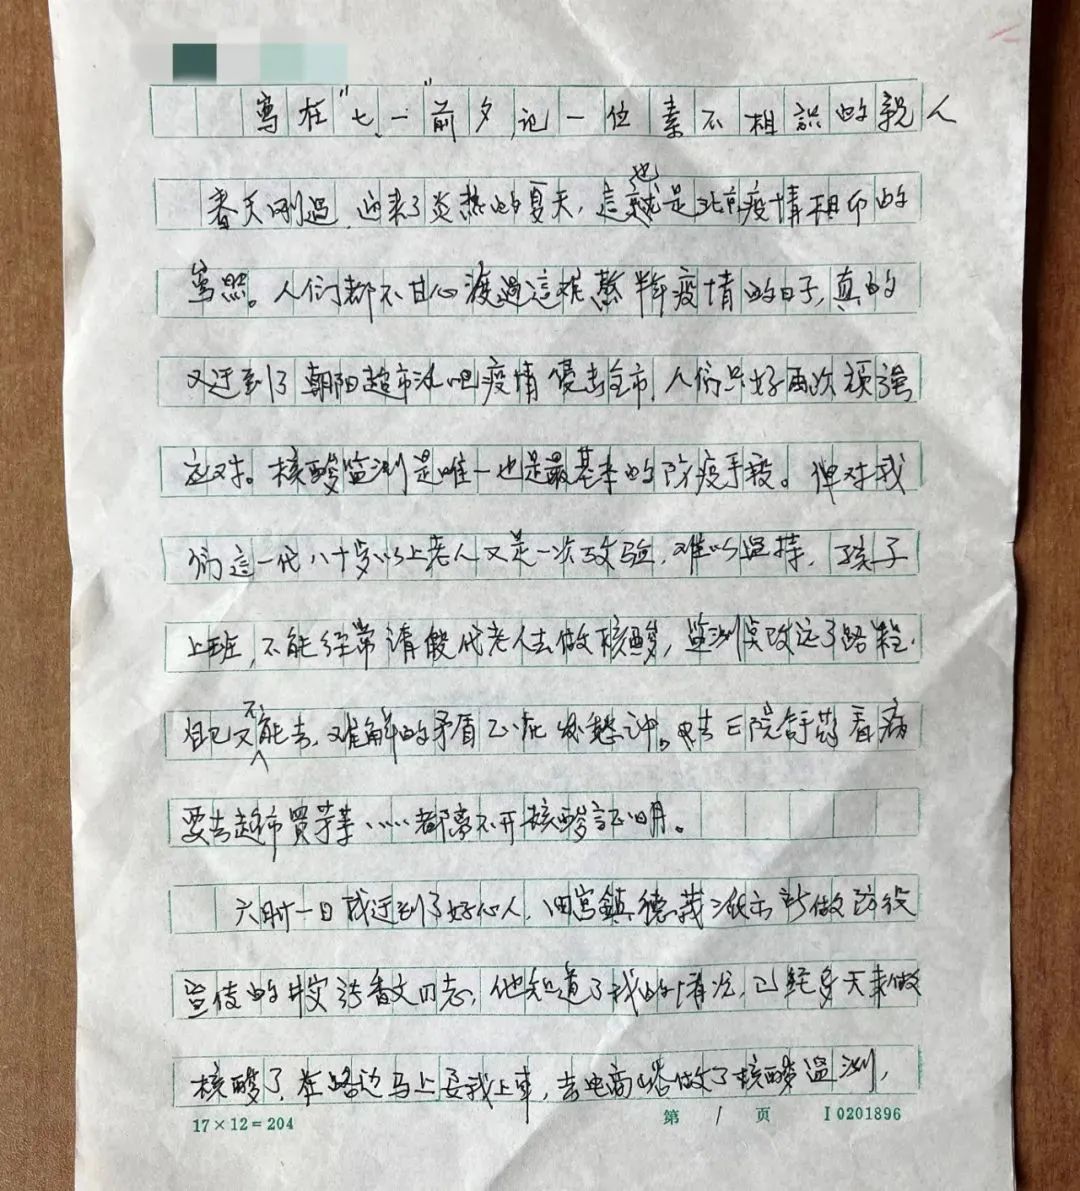 寫在“七、一”前夕,记一位素不相識的親人
春天刚過,迎来了炎热的夏天,這就也是北京疫情相印的
写照。人们都不甘心渡過這难熬半年疫情的日子,真的
又迂到了朝阳超市酒吧疫情侵击全市,人们只好再次顽强
应对。核酸监测是唯一也是最基本的防疫手段。但对我
们這一代八十岁以上老人又是一次考验,难以坚持,孩子
上班,不能经常請假代老人去做核酸,监测点改远了路程.
自己又不能去,难解的矛盾正在发愁时。要去医院舒药看病
要去超市買芋..……都离不开核酸証明。
六月一日我迂到了好心人,旧宫鎮德茂 做防役
宣传的 香文同志,他知道了我的情况,已经多天未做
核酸了,在路边马上要我上車,去电商 做了核酸监测,
17×12=204
第 1 页
I 0201896